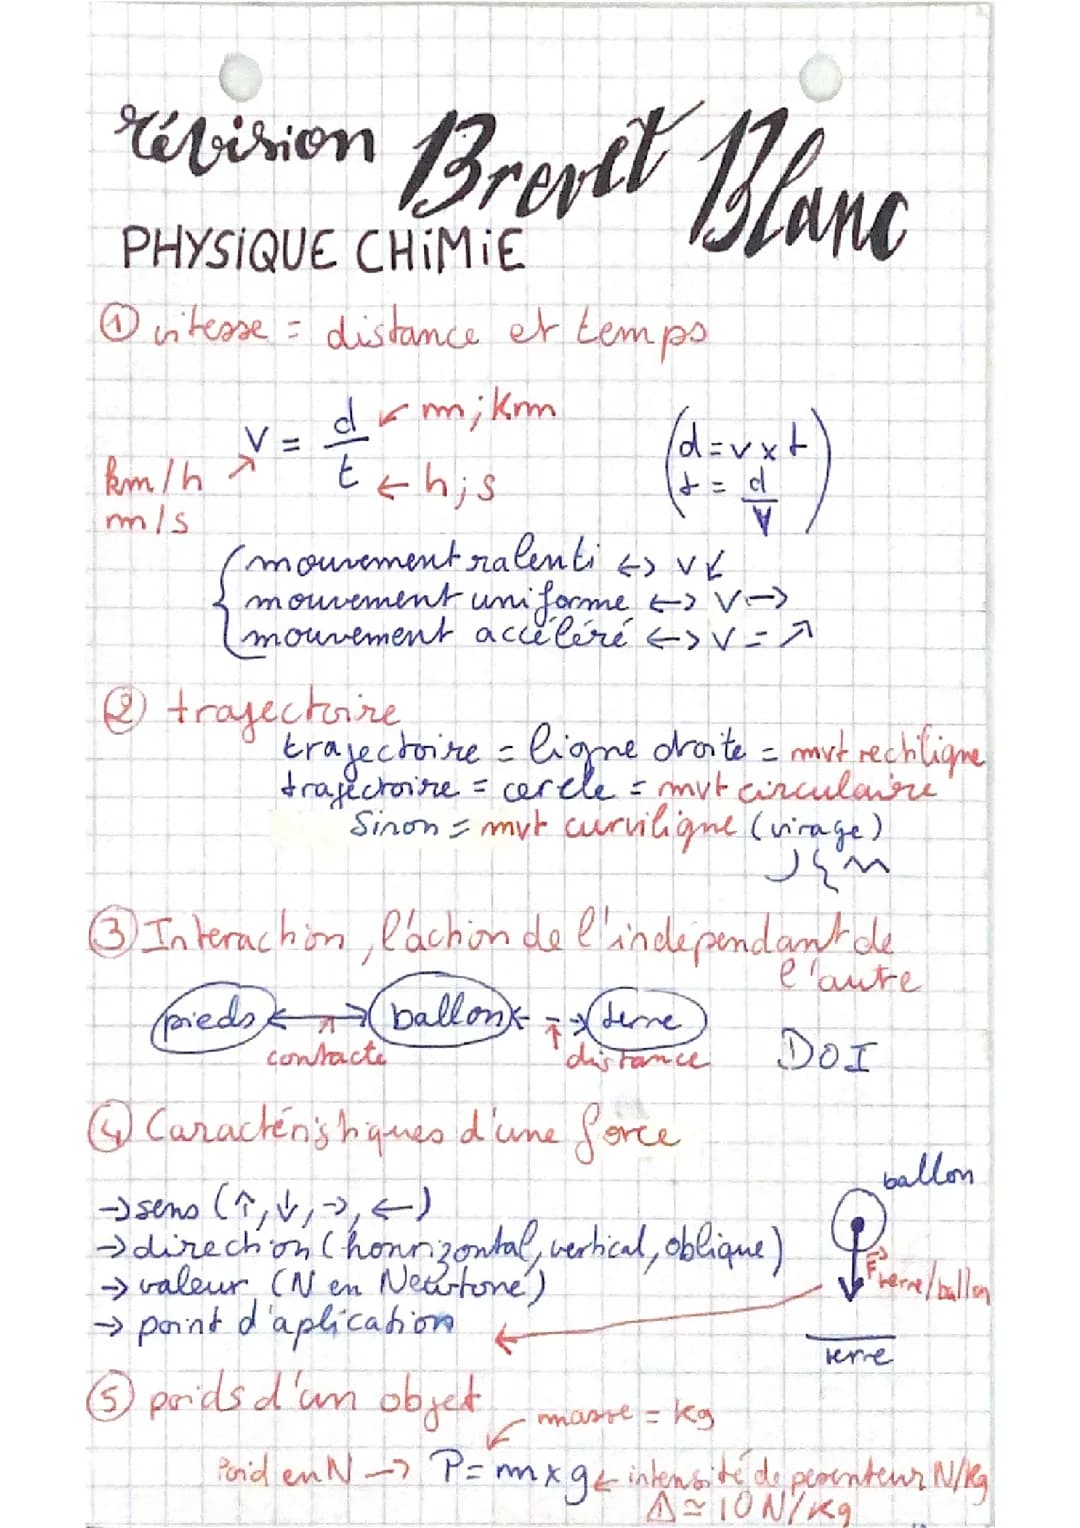 révision Brevet Blanc
PHYSIQUE CHIMIE
① vitesse = distance et temps
V = d/t
m ; Km
h ; s
km/h
m/s
(d = v x t
t = d/V)
mouvement ralenti <-> V ↙
mouvement uniforme <-> V ->
mouvement accéléré <-> V = ↗
② trajectoire
trajectoire = ligne droite = mvt rectiligne
trajectoire = cercle = mvt circulaire
Sinon = mvt curviligne (virage)
③ Interaction, l'action de l'indépendant de
l'autre
pieds <-> ballon <- -> terre
contacte distance
DOI
④ Caractéristiques d'une force
-> sens (↑, ↓, ->, <-)
-> direction (honrizontal, vertical, oblique)
-> valeur (N en Newtone)
-> point d'aplication
ballon
F terre/ballon
terre
⑤ poids d'un objet
masse = kg
Poid en N -> P = m x g <- intensité de pesenteur N/Kg
⚠ ≃ 10 N/Kg